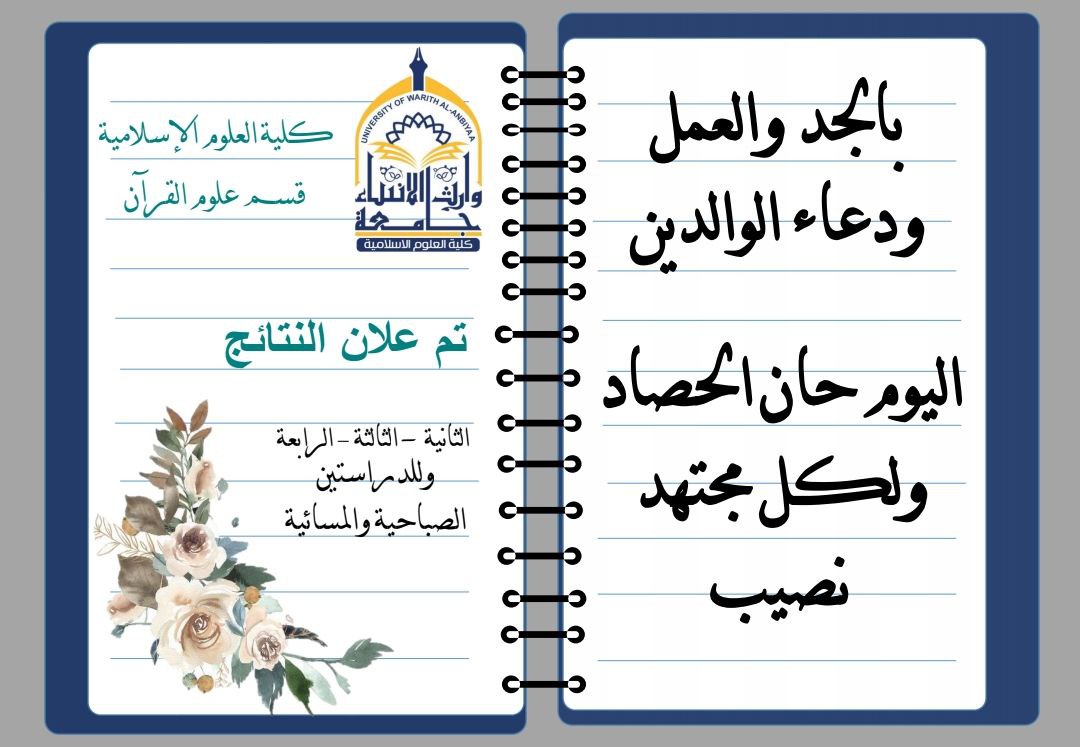 بالجد والعمل
ودعاء الوالدين
اليوم حان الحصاد
ولكل مجتهد
نصيب
UNIVERSITY OF WARITH AL-ANBIYAA
وارث الانبياء
جامعة
كلية العلوم الاسلامية
كلية العلوم الإسلامية
قسم علوم القرآن
تم علان النتائج
الثانية - الثالثة - الرابعة
وللدراستين
الصباحية والمسائية